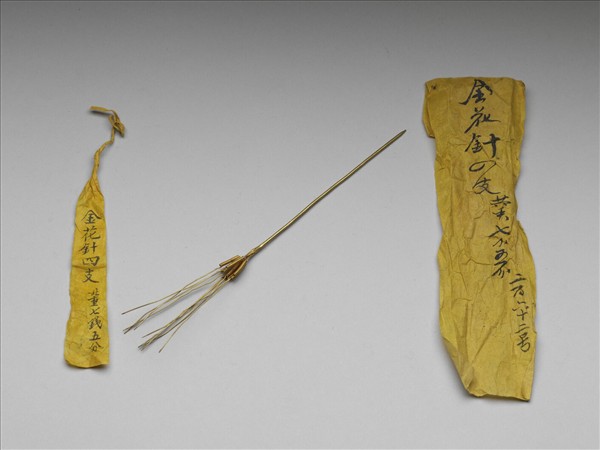 金花針四支
共重七錢五分
金花針四支
共重七錢五分
二百六十二号